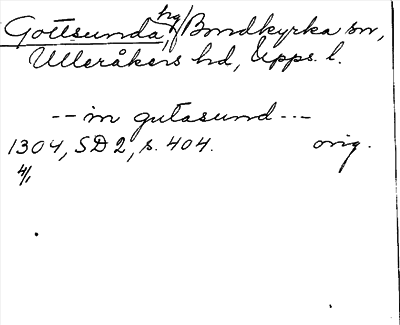 Gottsunda, hg/ Bondkyrka sn,
Ulleråkers hd, Upps. l.
-- in gutasund ---
1304, SD 2, s. 404. orig.
4/1